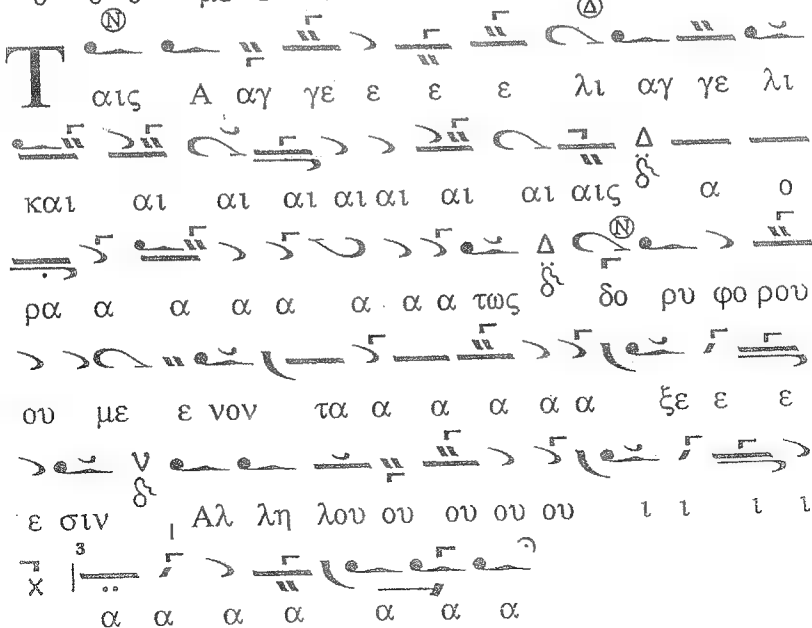 Ταις Α αγ γε ε ε ε λι αγ γε λι
και αι αι αι αι αι αι αι αις α ο
ρα α α α α α α α τως δο ρυ φο ρου
ου με ε νον τα α α α α α ξε ε ε
ε σιν Αλ λη λου ου ου ου ου ι ι ι ι
α α α α α α α